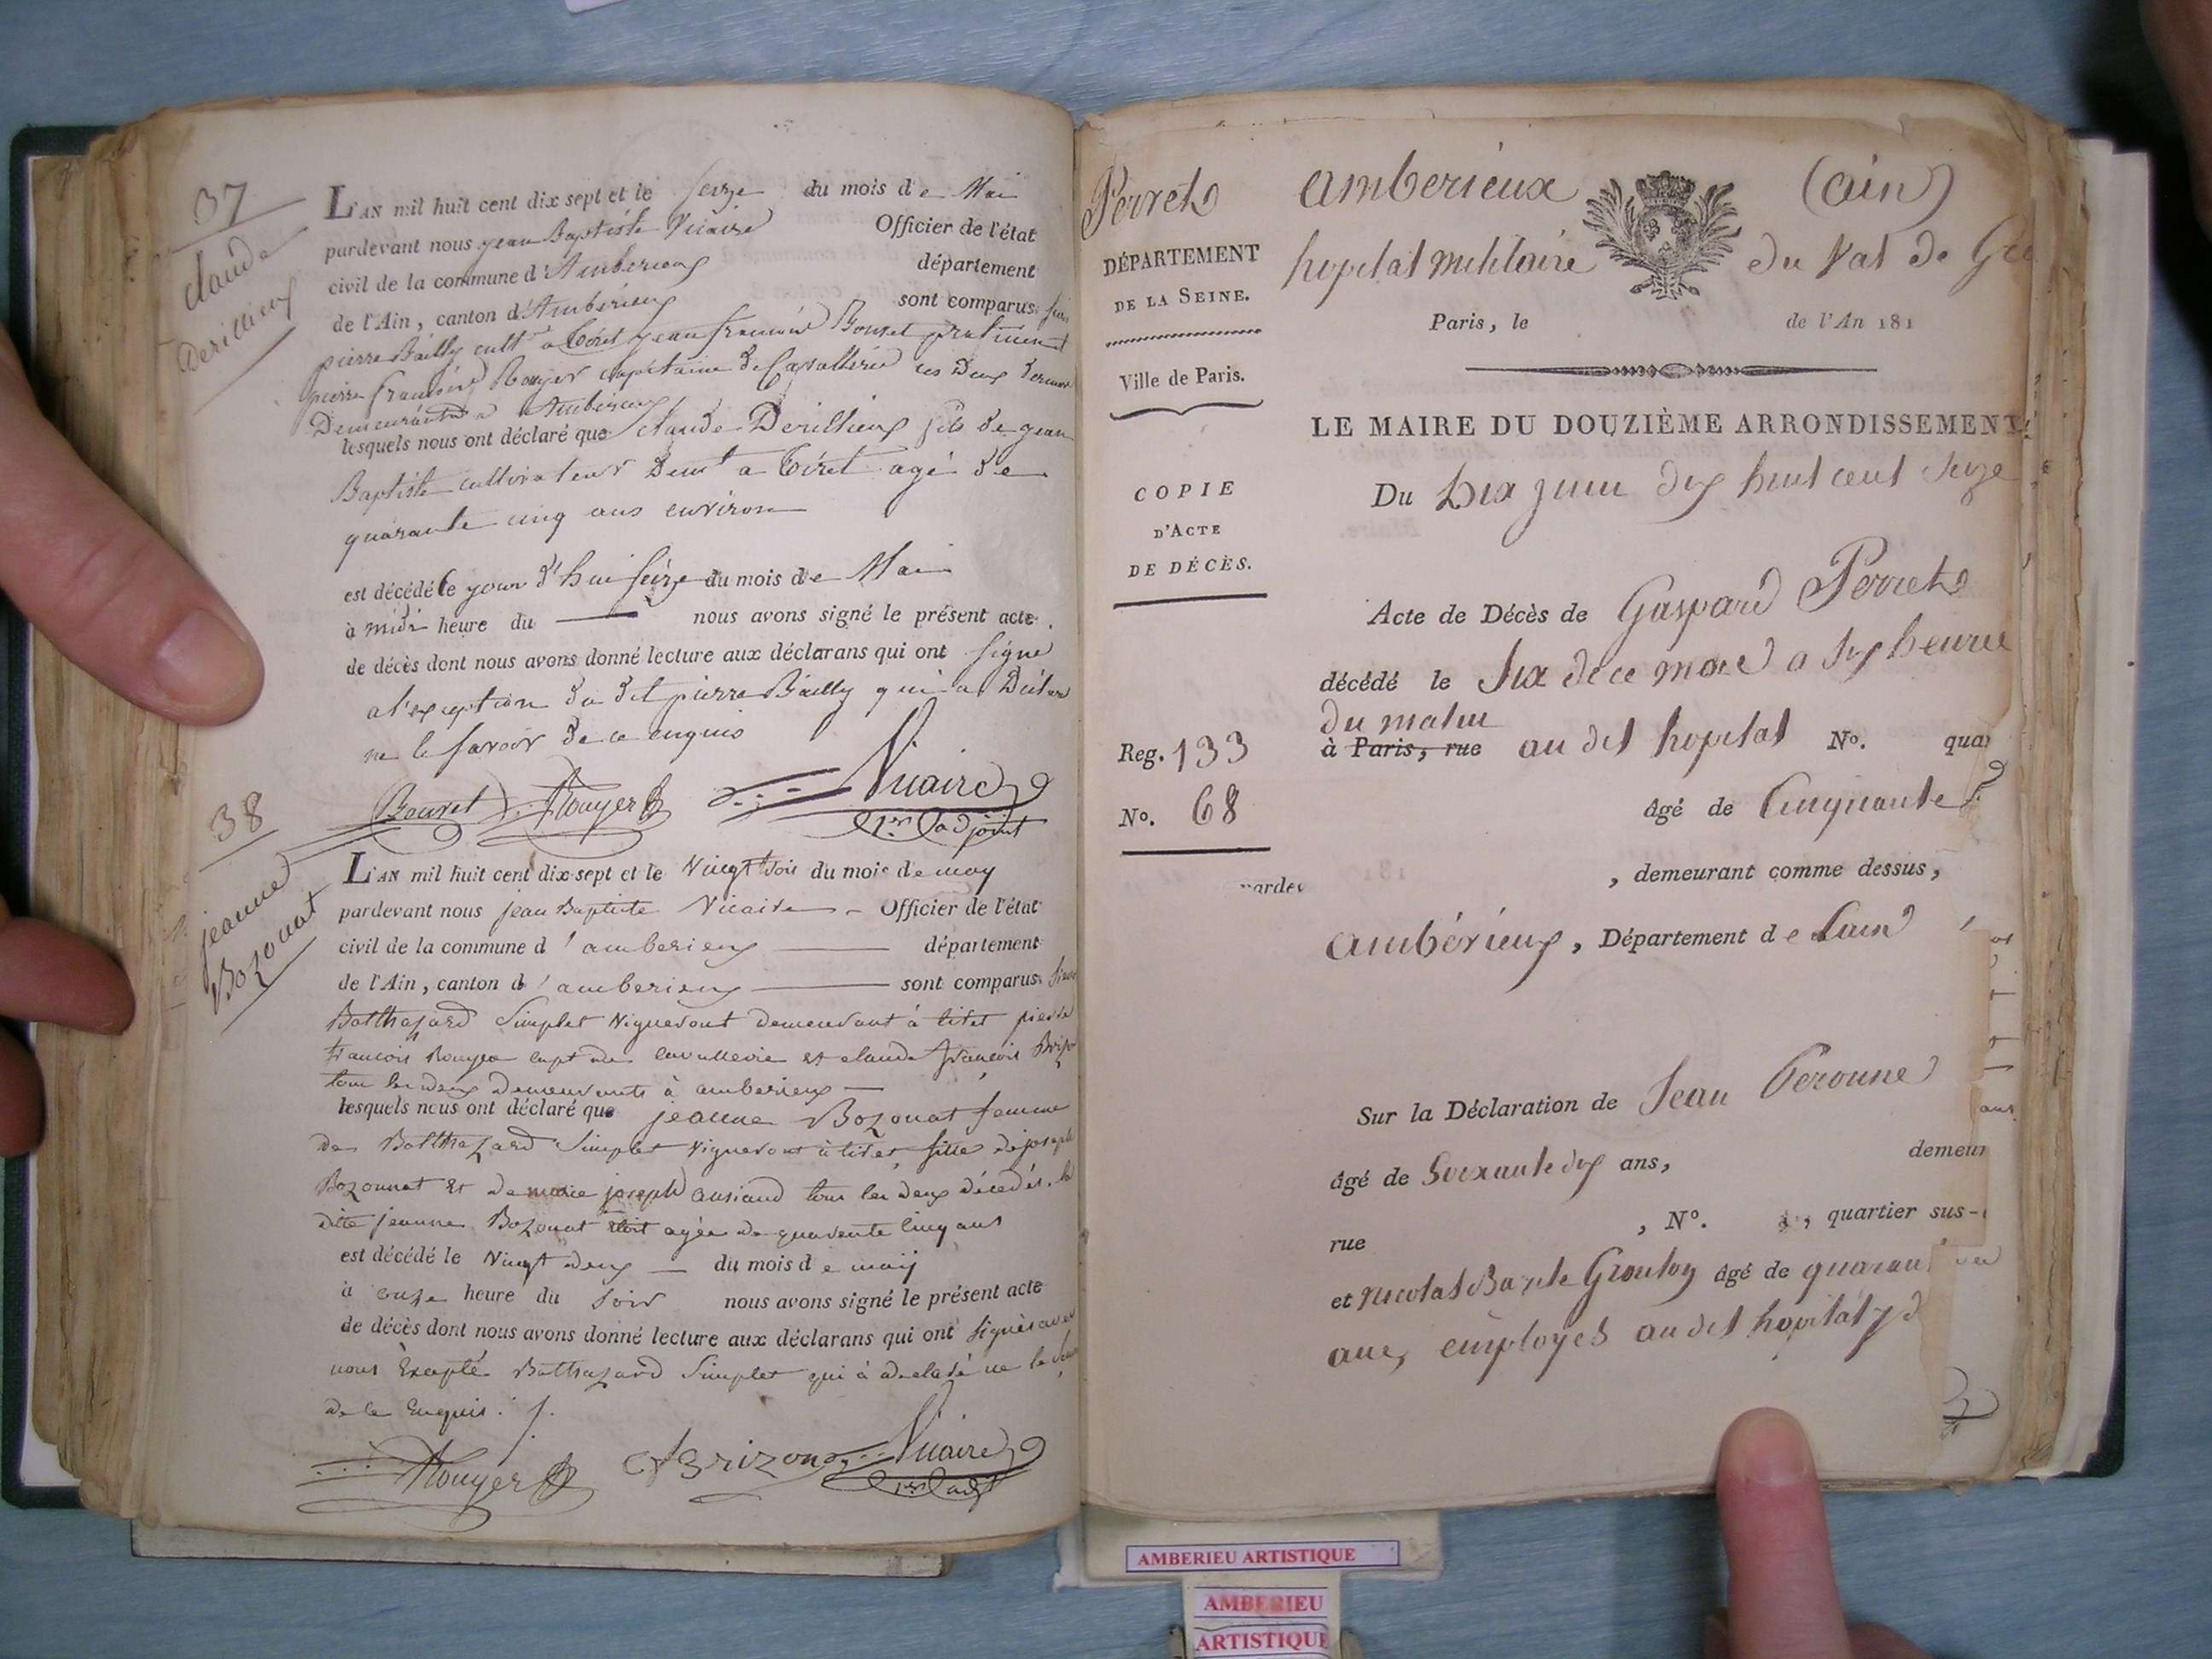 37
claude
Derillieux
L'AN mil huit cent dix sept et le seize du mois de Mai
pardevant nous jean Baptiste Vicaire Officier de l'état
civil de la commune d'Amberieux département
de l'Ain, canton d'Ambérieux sont comparus
pierre Bailly cultr a Tiret jean françois Bouvet
pierre françois Rouyer capitaine de Cavallerie les Deux dernier
Demeurants a Amberieux
lesquels nous ont déclaré que claude Derillieux fils de jean
Baptiste cultivateur Demt a Tiret agé de
quarante cinq ans environ
est décédé le jour d'hui seize du mois de Mai
à midi heure du nous avons signé le présent acte
de décès dont nous avons donné lecture aux déclarans qui ont signé
a l'exception du dit pierre Bailly qui a Déclaré
ne le savoir de ce enquis
Bouvet Rouyer Vicaire
1er adjoint
38
jeanne
Bozonat
L'AN mil huit cent dix sept et le Vingt trois du mois de may
pardevant nous jean Baptiste Vicaire Officier de l'état
civil de la commune d'amberieux département
de l'Ain, canton d'amberieux sont comparus
Balthazard Simplet Vigneront demeurant à tiret pierre
francois Rouyer capt de cavallerie et claude françois Brizon
tous les deux demeurants à amberieux
lesquels nous ont déclaré que jeanne Bozonat femme
de Balthazard Simplet Vigneront à tiret fille de joseph
Bozonnat et de marie joseph ausiaud tous les deux décedés. la
dite jeanne Bozonat etoit agée de quarente cinq ans
est décédé le Vingt deux du mois de maÿ
à onze heure du soir nous avons signé le présent acte
de décès dont nous avons donné lecture aux déclarans qui ont signés avec
nous Excepté Balthazard Simplet qui à declaré ne le
de le Enquis
Rouyer Brizon Vicaire
1er adjt
Perret amberieux (ain)
hopital militaire du Val de
DÉPARTEMENT
DE LA SEINE.
Ville de Paris.
Paris, le de l'An 181
LE MAIRE DU DOUZIÈME ARRONDISSEMENT
COPIE
D'ACTE
DE DÉCÈS.
Du Dix juin dix huit cent seize
Acte de Décès de Gaspard Perret
décédé le Six de ce mois a six heures
du matin
à Paris, rue au dit hopital No. quar
Reg. 133
No. 68
âgé de Cinquante
, demeurant comme dessus,
ambérieux, Département de Lain
Sur la Déclaration de Jean Peronne
âgé de Soixante dix ans, demeur
rue , No. , quartier sus-
et nicolas Bazile Grouloy âgé de quarant
ans, employes au dit hopital
AMBERIEU ARTISTIQUE
AMBERIEU
ARTISTIQUE